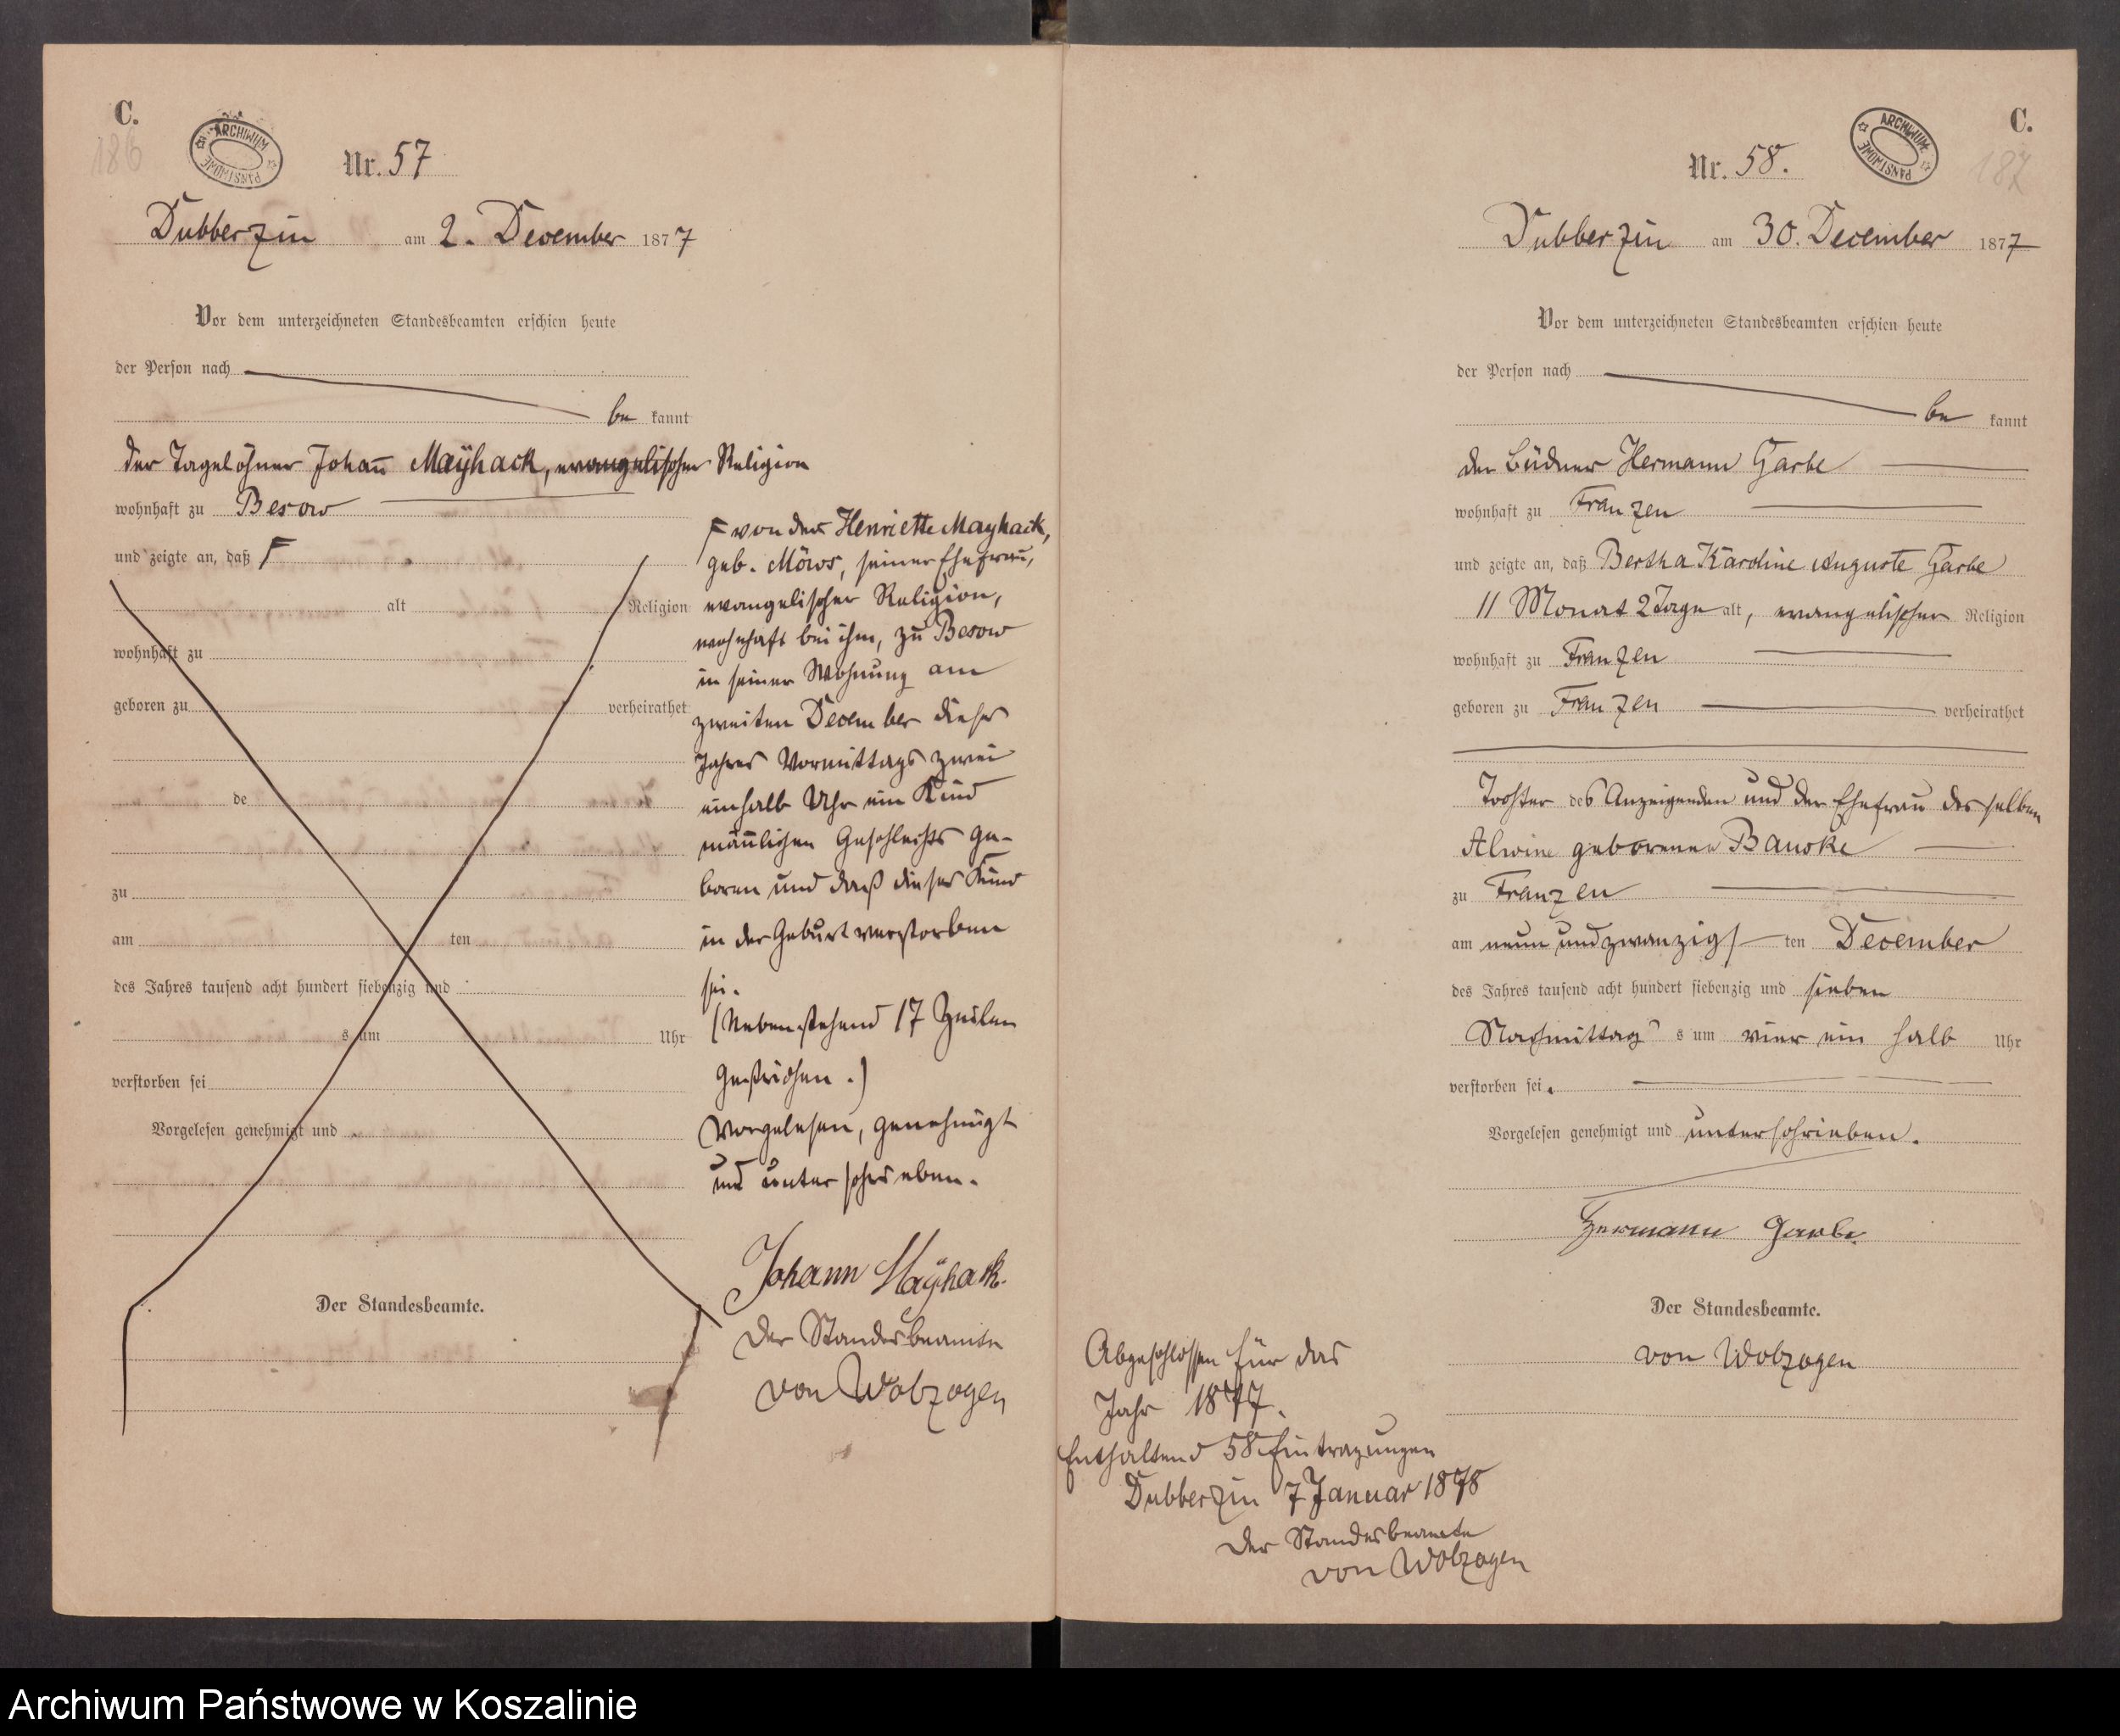 C.
186
ARCHIWUM PAŃSTWOWE
Nr. 57
Dubberzin am 2. December 1877
Vor dem unterzeichneten Standesbeamten erschien heute
der Person nach
be kannt
der Tagelöhner Johan̄ Maÿhack, evangelischer Religion
wohnhaft zu Besow
und zeigte an, daß F
alt Religion
wohnhaft zu
geboren zu verheirathet
de
zu
am ten
des Jahres tausend acht hundert siebenzig und
s um Uhr
verstorben sei
Vorgelesen genehmigt und
Der Standesbeamte.
F von der Henriette Mayhack,
geb. Möws, seiner Ehefrau,
evangelischer Religion,
wohnhaft bei ihm, zu Besow
in seiner Wohnung am
zweiten December dieses
Jahres Vormittags zwei
einhalb Uhr ein Kind
män̄lichen Geschlechts ge-
boren und daß dieses Kind
in der Geburt verstorben
sei.
(Nebenstehend 17 Zeilen
gestrichen.)
Vorgelesen, genehmigt
und unterschrieben.
Johann Maÿhack.
Der Standesbeamte
von Wobzogen
C.
187
ARCHIWUM PAŃSTWOWE
Nr. 58.
Dubberzin am 30. December 1877
Vor dem unterzeichneten Standesbeamten erschien heute
der Person nach
be kannt
der Büdner Hermann Garbe
wohnhaft zu Franzen
und zeigte an, daß Bertha Karoline Auguste Garbe
11 Monat 2 Tage alt, evangelischer Religion
wohnhaft zu Franzen
geboren zu Franzen verheirathet
Tochter des Anzeigenden und der Ehefrau desselben
Alwine geborenen Banske
zu Franzen
am neun und zwanzigs ten December
des Jahres tausend acht hundert siebenzig und sieben
Nachmittag s um vier ein halb Uhr
verstorben sei.
Vorgelesen genehmigt und unterschrieben.
Hermann Garbe.
Der Standesbeamte.
von Wobzogen
Abgeschlossen für das
Jahr 1877.
Enthaltend 58 Eintragungen
Dubberzin 7 Januar 1878
Der Standesbeamte
von Wobzogen
Archiwum Państwowe w Koszalinie